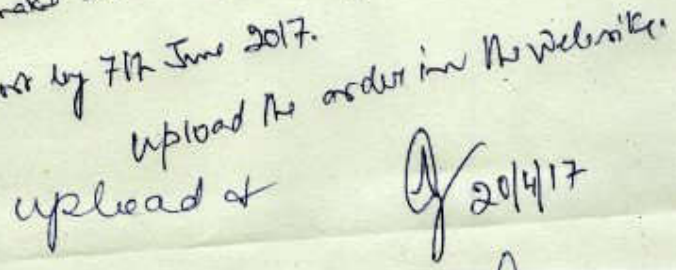 by 7th June 2017.
upload the order in the website.
upload &
20/4/17